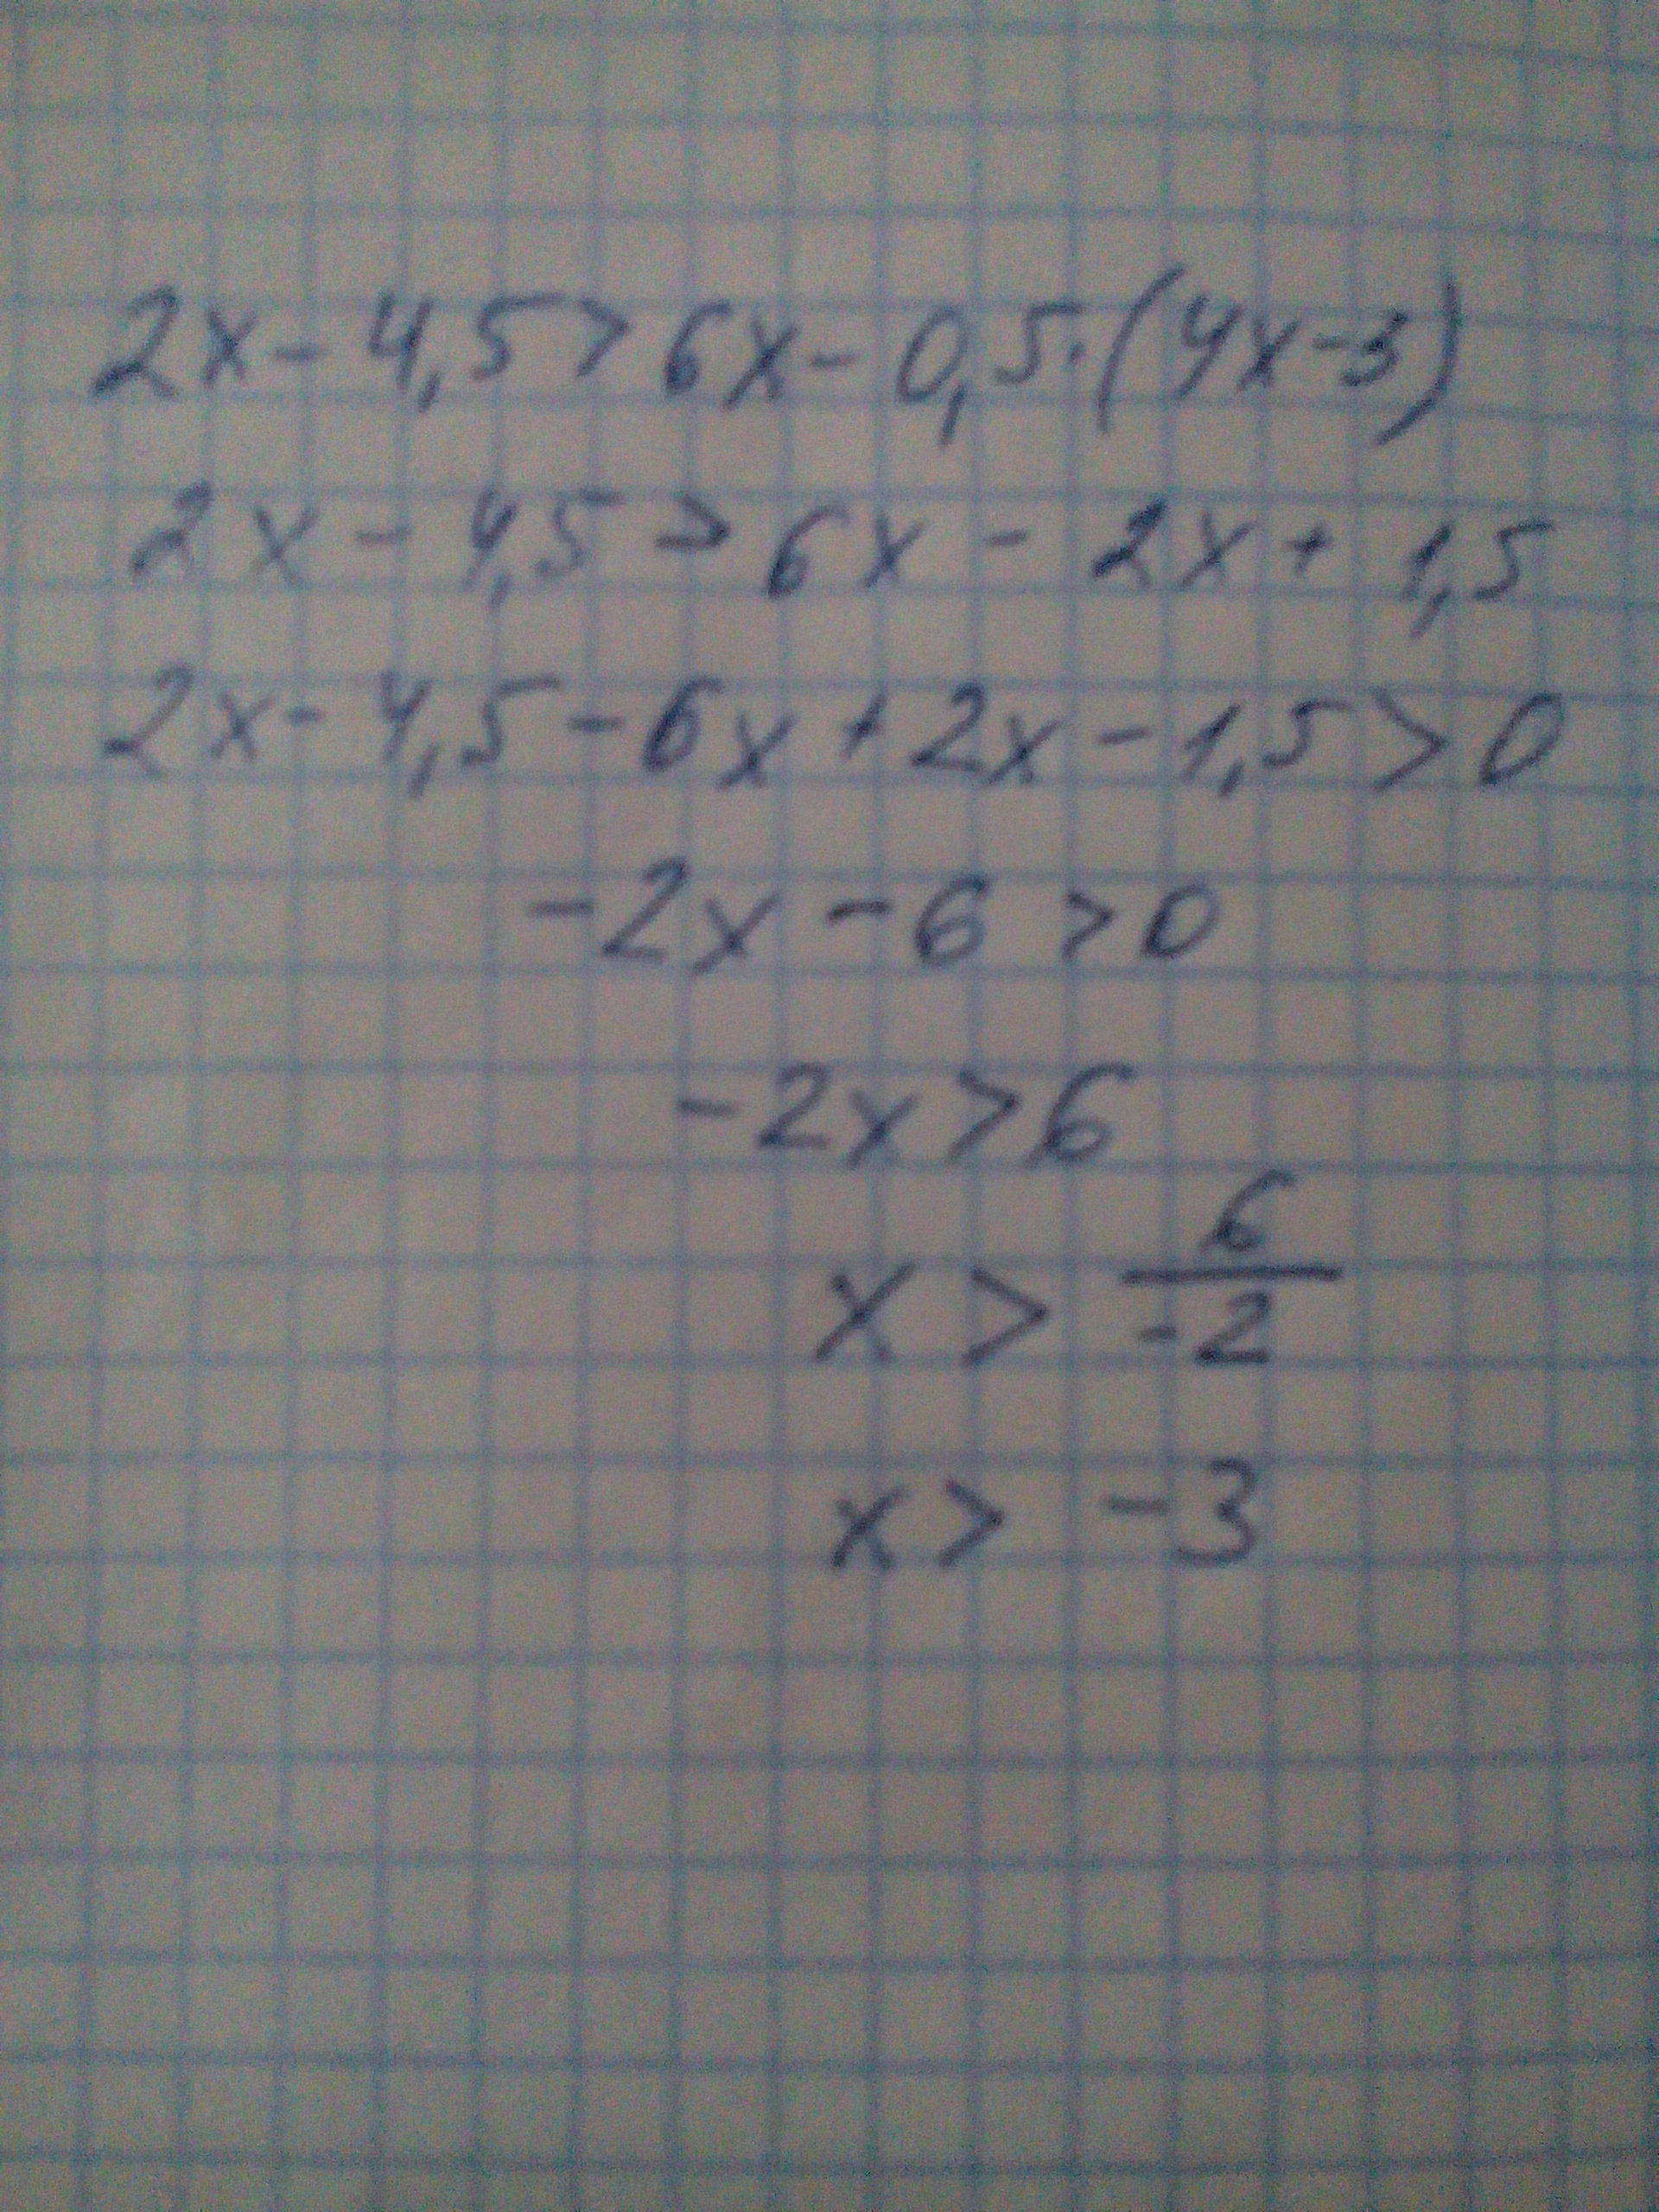 2x - 4,5 > 6x - 0,5·(4x-3)
2x - 4,5 > 6x - 2x + 1,5
2x - 4,5 - 6x + 2x - 1,5 > 0
-2x - 6 > 0
-2x > 6
x > 6/-2
x > -3